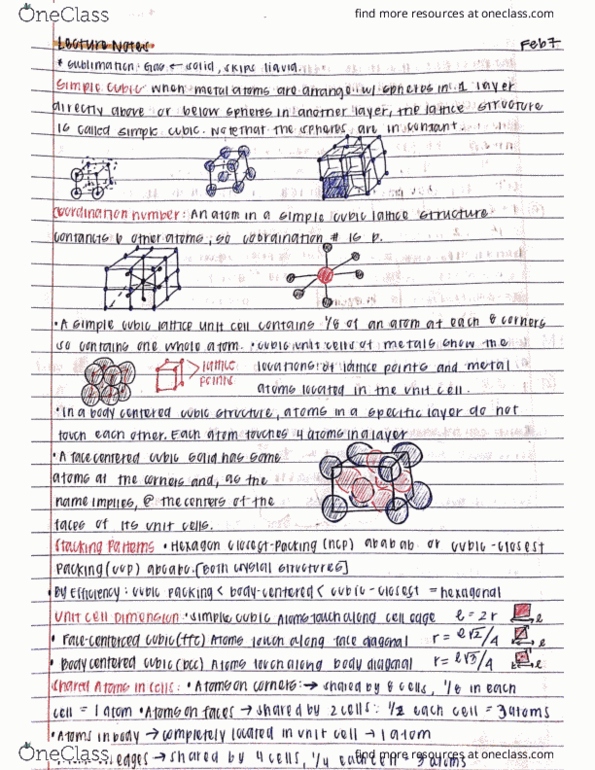 OneClass
find more resources at oneclass.com
Lecture Notes
Feb 7
* sublimation: Gas ← solid, skips liquid.
Simple cubic when metal atoms are arrange w/ spheres in 1 layer
directly above or below spheres in another layer, the lattice structure
is called simple cubic. Note that the spheres are in contant.
Coordination number: An atom in a simple cubic lattice structure
contacts 6 other atoms, so coordination # is 6.
• A simple cubic lattice unit cell contains 1/8 of an atom at each 8 corners
so contains one whole atom. • cubic unit cells of metals show the
lattice points
locations of lattice points and metal
atoms located in the unit cell.
• In a body centered cubic structure, atoms in a specific layer do not
touch each other. Each atom touches 4 atoms in a layer
• A face centered cubic solid has same
atoms at the corners and, as the
name implies, @ the centers of the
faces of its unit cells.
Stacking Patterns • Hexagon closest-packing (hcp) ababab or cubic-closest
packing (ccp) abcabc. [both crystal structures]
• By Efficiency: cubic packing < body-centered < cubic-closest = hexagonal
Unit cell Dimension • simple cubic Atoms touch along cell edge l = 2r l
• Face-centered cubic (fcc) Atoms touch along face diagonal r = l√2/4 l
• Body centered cubic (bcc) Atoms touch along body diagonal r = l√3/4 l
Shared Atoms in cells: • Atoms on corners: → shared by 8 cells, 1/8 in each
cell = 1 atom • Atoms on faces → shared by 2 cells: 1/2 each cell = 3 atoms
• Atoms in body → completely located in unit cell → 1 atom
edges → shared by 4 cells, 1/4 each cell 3 atoms
OneClass
find more resources at oneclass.com